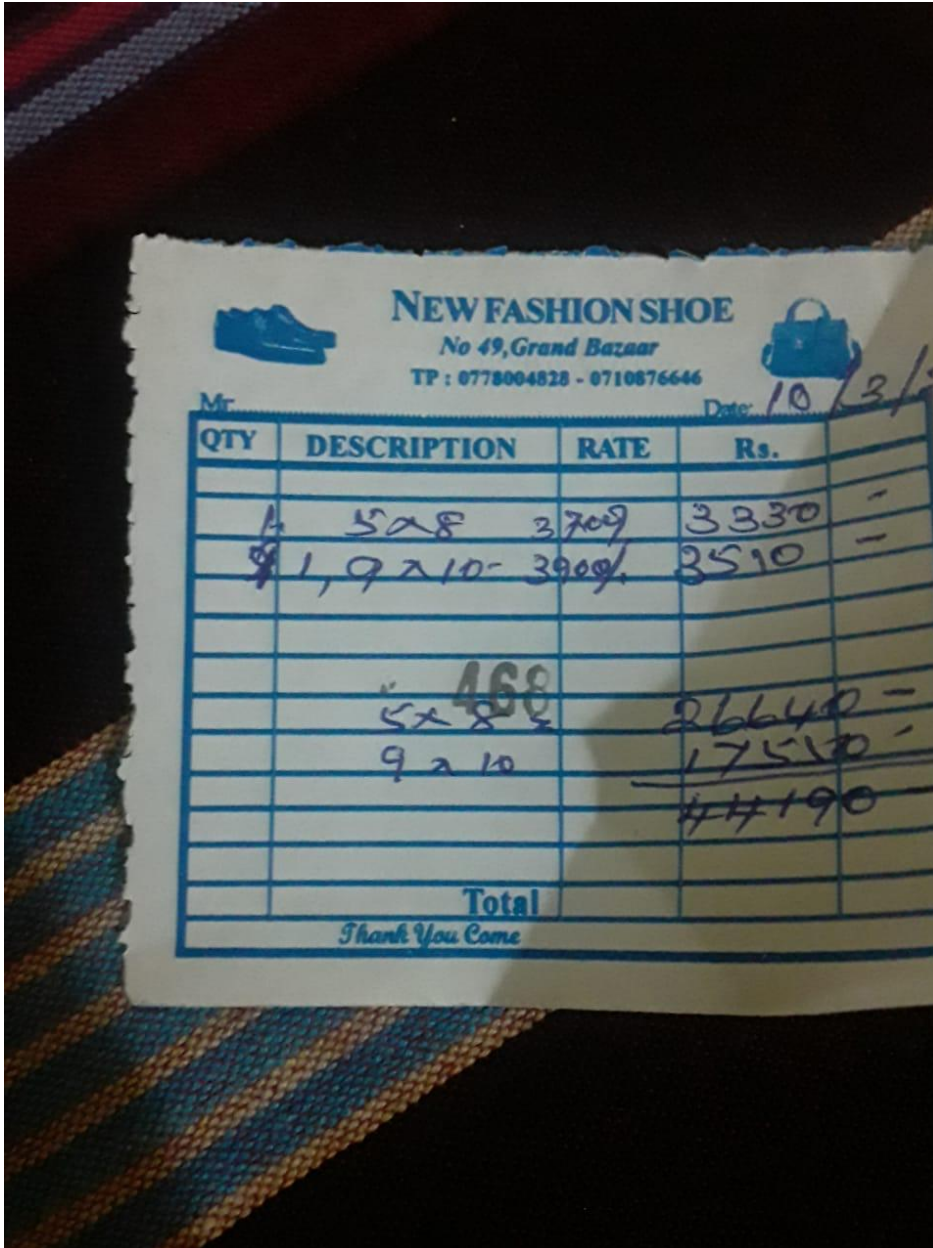 NEW FASHION SHOE
No 49, Grand Bazaar
TP : 0778004828 - 0710876646
Mr. Date: 10/3/
QTY DESCRIPTION RATE Rs.
5x8 3700/ 3330 -
1, 9 x 10 - 3900/. 3510 -
468
5x 8 26640 -
9 x 10 17550 -
44190
Total
Thank You Come